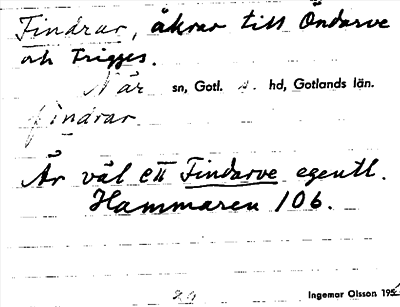 Findrar, åkrar till Öndarve
och Trigges.
När sn, Gotl. s. hd, Gotlands län.
findrar
Är väl ett Findarve egentl.
Hammaren 106.
Ingemar Olsson 195